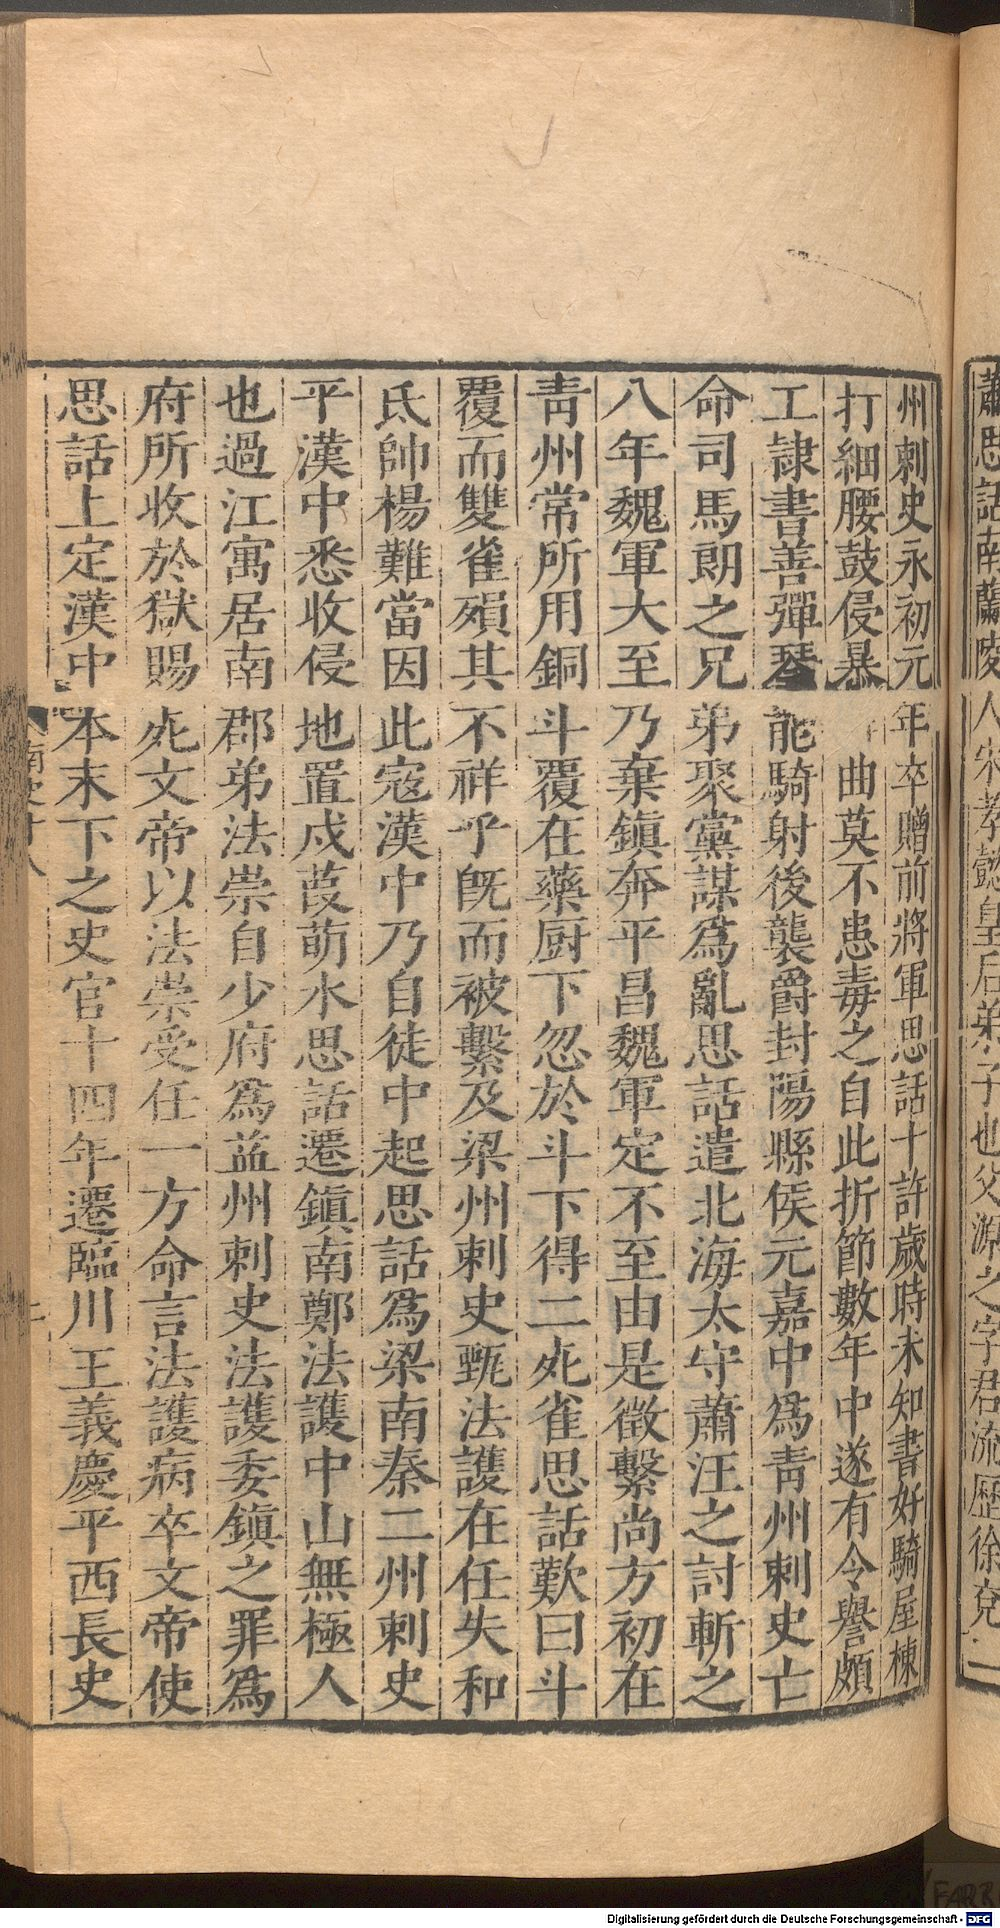 蕭思話南蘭陵人宋孝懿皇后弟子也父源之字君流歷徐兗二
州刺史永初元年卒贈前將軍思話十許歲時未知書好騎屋棟
打細腰鼓侵暴 曲莫不患毒之自此折節數年中遂有令譽頗
工隷書善彈琴能騎射後襲爵封陽縣侯元嘉中爲靑州刺史亡
命司馬朗之兄弟聚黨謀爲亂思話遣北海太守蕭汪之討斬之
八年魏軍大至乃棄鎭奔平昌魏軍定不至由是徵繫尚方初在
靑州常所用銅斗覆在藥厨下忽於斗下得二死雀思話歎曰斗
覆而雙雀殞其不祥乎旣而被繫及梁州刺史甄法護在任失和
氐帥楊難當因此寇漢中乃自徒中起思話爲梁南秦二州刺史
平漢中悉收侵地置戍葭萌水思話遷鎭南鄭法護中山無極人
也過江寓居南郡弟法崇自少府爲益州刺史法護委鎭之罪爲
府所收於獄賜死文帝以法崇受任一方命言法護病卒文帝使
思話上定漢中本末下之史官十四年遷臨川王義慶平西長史
南史十八
Digitalisierung gefördert durch die Deutsche Forschungsgemeinschaft - DFG